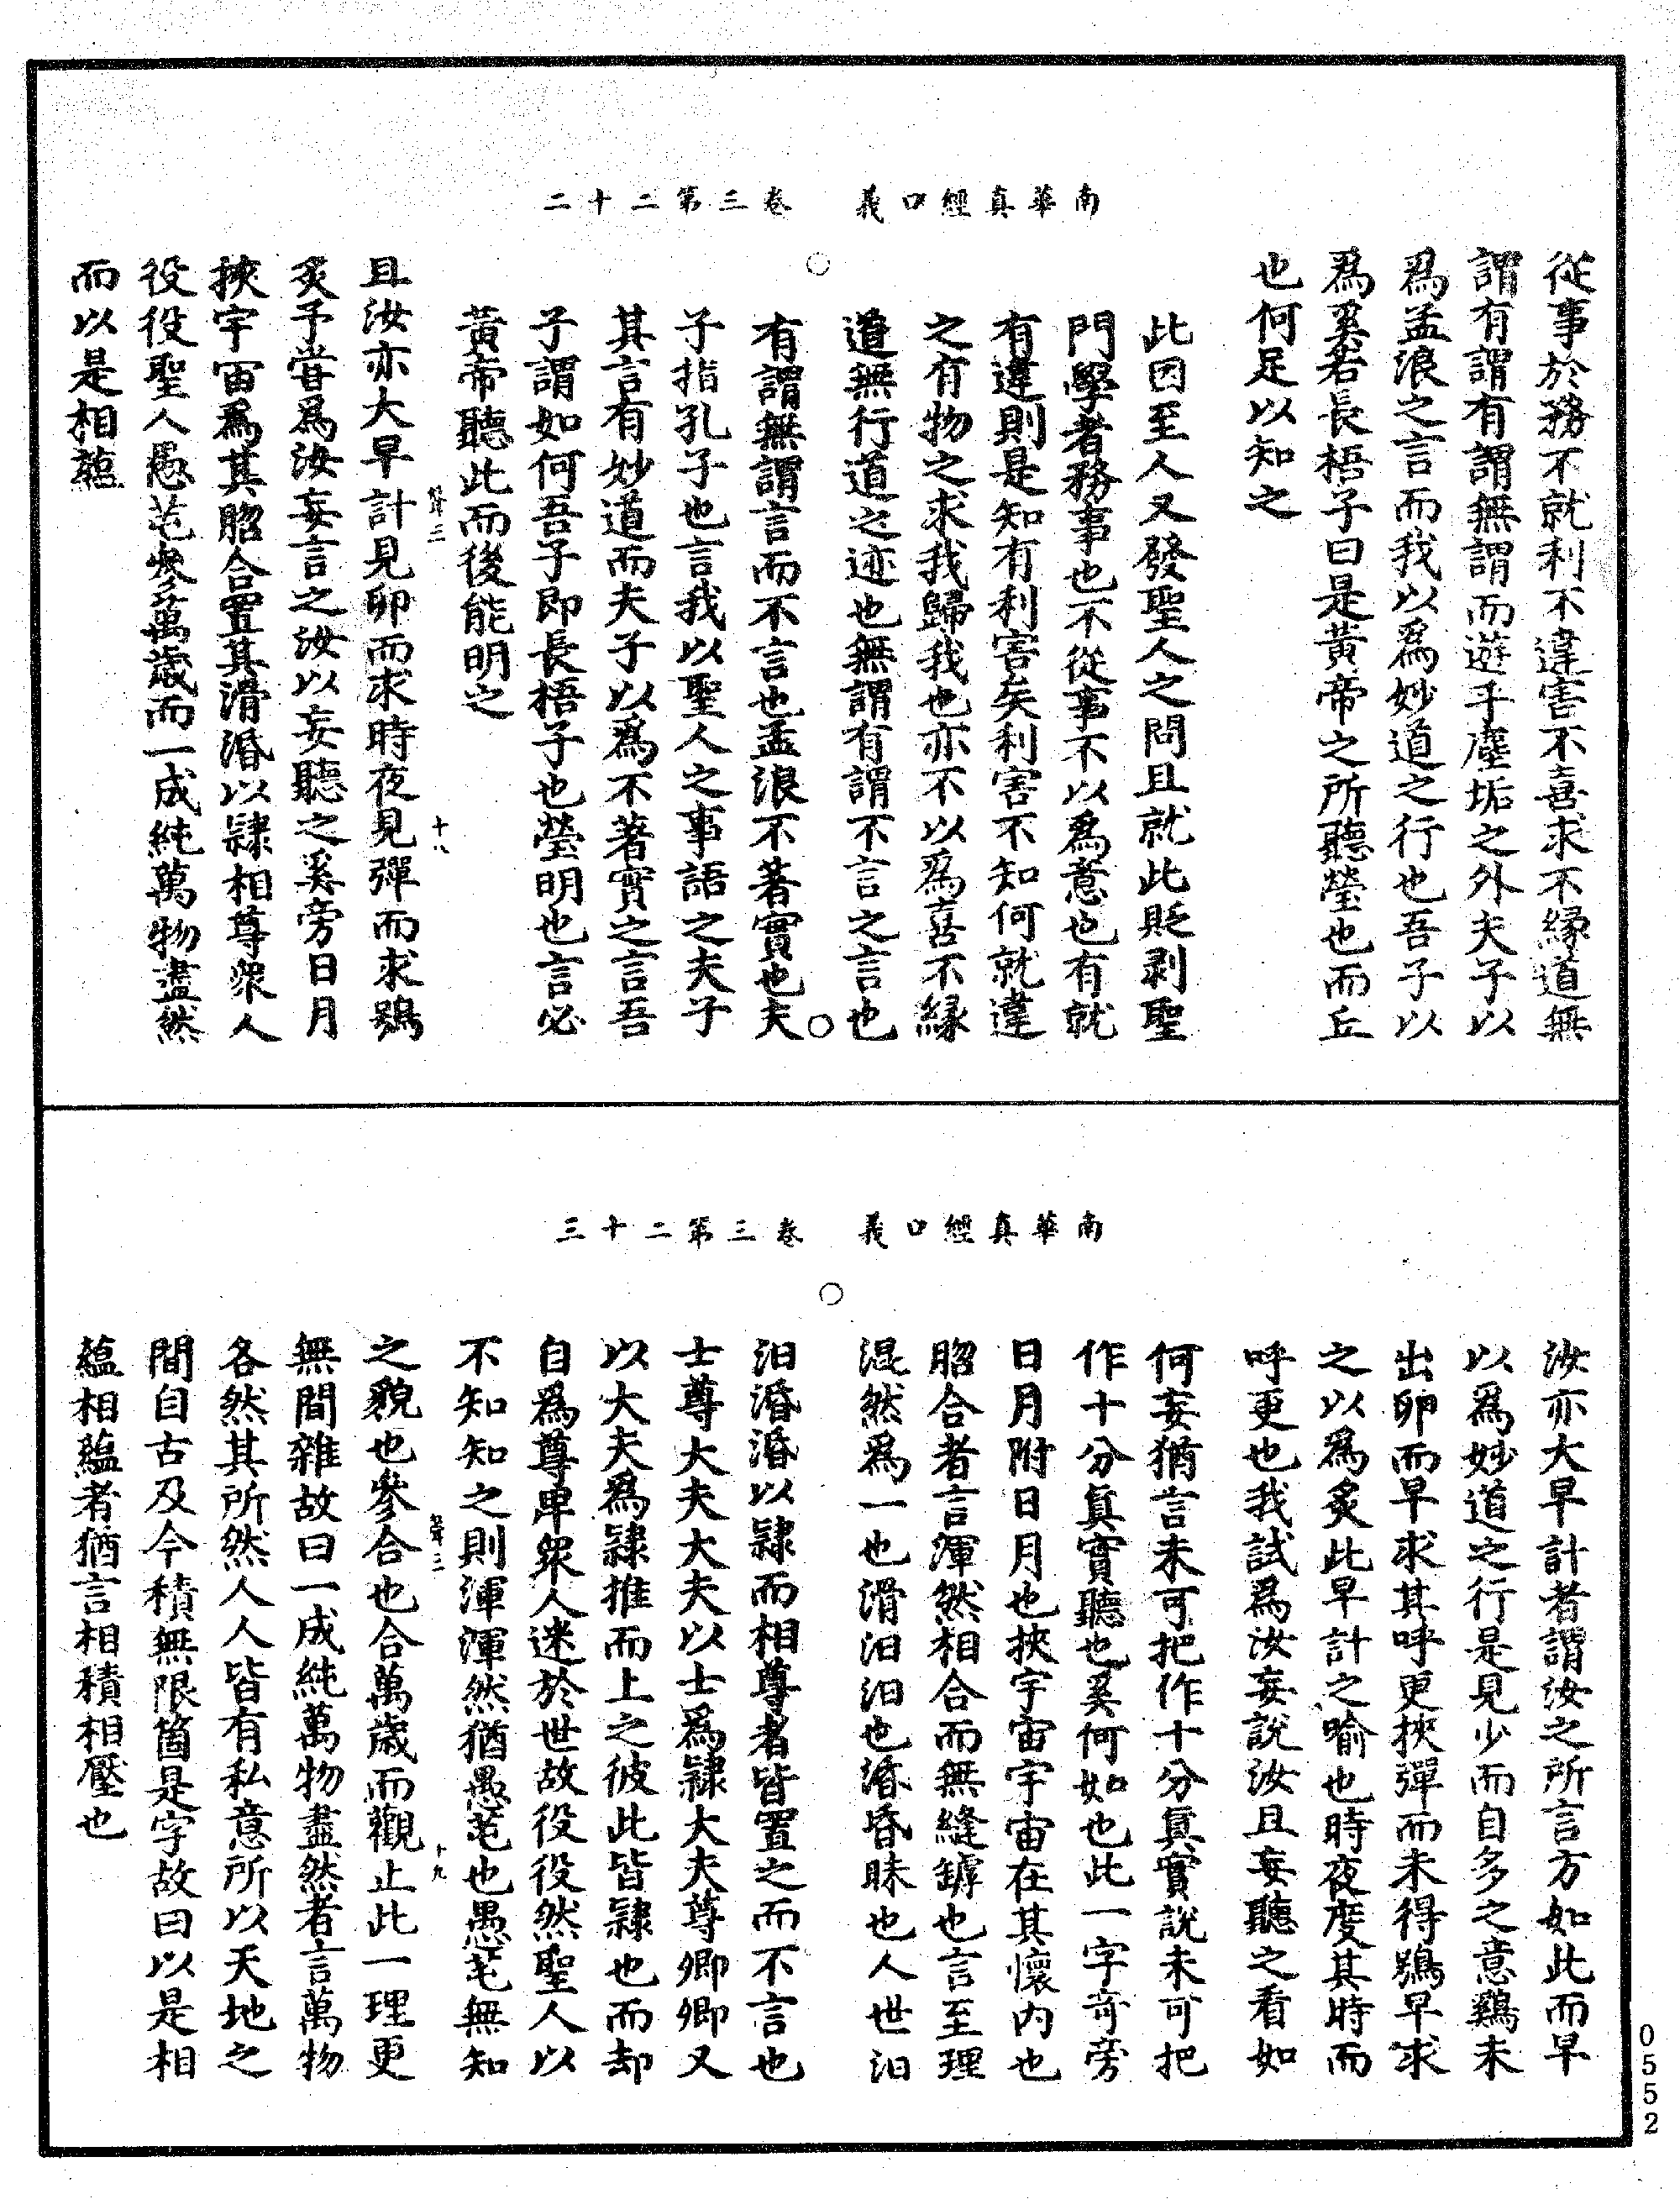 南華真經口義　卷三第二十二
從事於務不就利不違害不喜求不緣道無
謂有謂有謂無謂而遊乎塵垢之外夫子以
爲孟浪之言而我以爲妙道之行也吾子以
爲奚若長梧子曰是黃帝之所聽瑩也而丘
也何足以知之
此因至人又發聖人之問且就此貶剥聖
門學者務事也不從事不以爲意也有就
有違則是知有利害矣利害不知何就違
之有物之求我歸我也亦不以爲喜不緣
道無行道之迹也無謂有謂不言之言也
有謂無謂言而不言也孟浪不著實也夫
子指孔子也言我以聖人之事語之夫子
其言有妙道而夫子以爲不著實之言吾
子謂如何吾子即長梧子也瑩明也言必
黃帝聽此而後能明之
且汝亦大早計見卵而求時夜見彈而求鴞
炙予嘗爲汝妄言之汝以妄聽之奚旁日月
挾宇宙爲其脗合置其滑涽以隸相尊衆人
役役聖人愚芚參萬歲而一成純萬物盡然
而以是相蘊
十八
南華真經口義　卷三第二十三
汝亦大早計者謂汝之所言方如此而早
以爲妙道之行是見少而自多之意鷄未
出卵而早求其呼更挾彈而未得鴞早求
之以爲炙此早計之喻也時夜度其時而
呼更也我試爲汝妄說汝且妄聽之看如
何妄猶言未可把作十分眞實說未可把
作十分眞實聽也奚何如也此一字奇旁
日月附日月也挾宇宙宇宙在其懷内也
脗合者言渾然相合而無縫罅也言至理
混然爲一也滑汩汩也涽昏昧也人世汩
汩涽涽以隸而相尊者皆置之而不言也
士尊大夫大夫以士爲隸大夫尊卿卿又
以大夫爲隸推而上之彼此皆隸也而却
自爲尊卑衆人迷於世故役役然聖人以
不知知之則渾渾然猶愚芚也愚芚無知
之貌也參合也合萬歲而觀止此一理更
無間雜故曰一成純萬物盡然者言萬物
各然其所然人人皆有私意所以天地之
間自古及今積無限箇是字故曰以是相
蘊相蘊者猶言相積相壓也
十九
0552